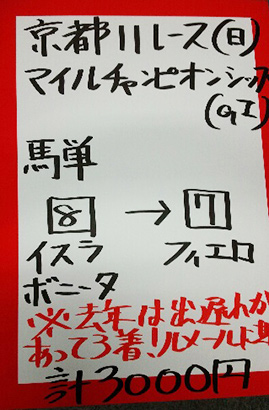 京都11レース(日)
マイルチャンピオンシップ
(GI)
馬単
8 → 7
イスラ フィエロ
ボニータ
※去年は出遅れが
あって3着!ルメールに
計3000円